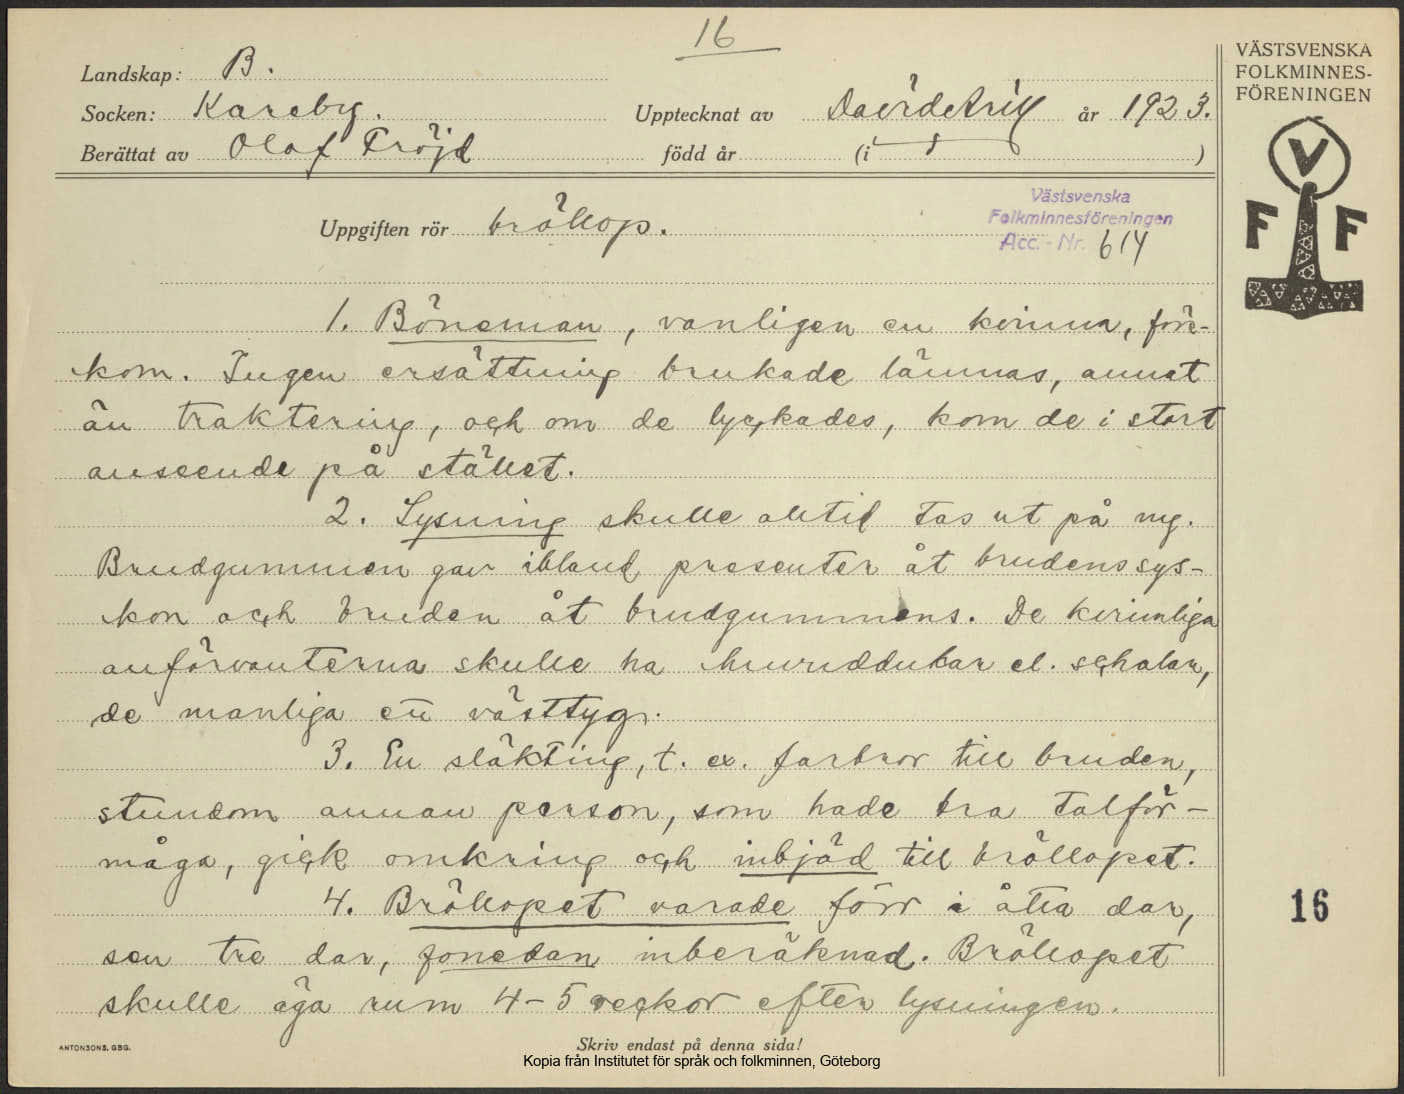 16
Landskap: B.
Socken: Kareby. Upptecknat av David Arill år 1923.
Berättat av Olof Fröjd född år (i )
VÄSTSVENSKA
FOLKMINNES-
FÖRENINGEN
V
F F
Uppgiften rör bröllop.
Västsvenska
Folkminnesföreningen
Acc. - Nr. 614
1. Böneman, vanligen en kvinna, före-
kom. Ingen ersättning brukade lämnas, annat
än traktering, och om de lyckades, kom de i stort
anseende på stället.
2. Lysning skulle alltid tas ut på ny.
Brudgummen gav ibland presenter åt brudens sys-
kon och bruden åt brudgummens. De kvinnliga
anförvanterna skulle ha huvuddukar el. schalar,
de manliga ett västtyg.
3. En släkting, t. ex. farbror till bruden,
stundom annan person, som hade bra talför-
måga, gick omkring och inbjöd till bröllopet.
4. Bröllopet varade förr i åtta dar,
sen tre dar, fonedan inberäknad. Bröllopet
skulle äga rum 4-5 veckor efter lysningen.
16
ANTONSONS, GBG.
Skriv endast på denna sida!
Kopia från Institutet för språk och folkminnen, Göteborg